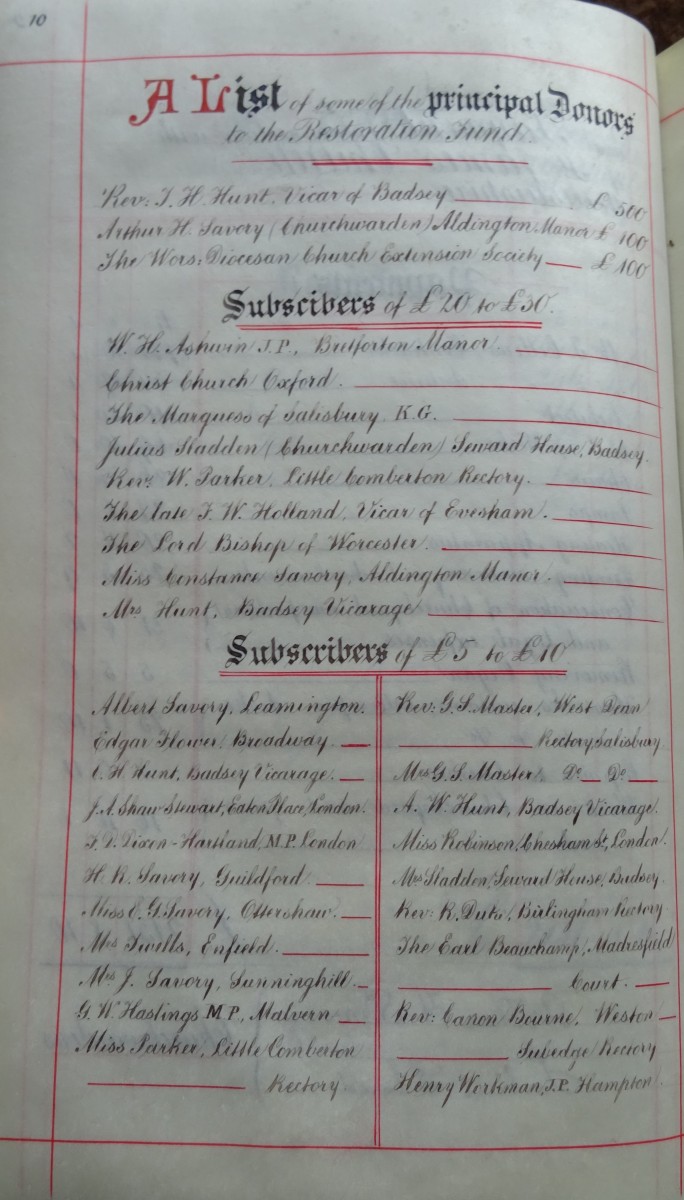 10
A List of some of the principal Donors
to the Restoration Fund.
Rev: T. H. Hunt, Vicar of Badsey £ 500
Arthur H. Savory (Churchwarden) Aldington Manor £ 100
The Wors: Diocesan Church Extension Society £ 100
Subscibers of £20 to £30.
W. H. Ashwin J.P., Bretforton Manor.
Christ Church Oxford.
The Marquess of Salisbury. K.G.
Julius Sladden (Churchwarden) Seward House, Badsey.
Rev: W. Parker, Little Comberton Rectory.
The late F. W. Holland, Vicar of Evesham.
The Lord Bishop of Worcester.
Miss Constance Savory, Aldington Manor.
Mrs Hunt, Badsey Vicarage
Subscribers of £5 to £10.
Albert Savory, Leamington.
Edgar Flower, Broadway.
C. H. Hunt, Badsey Vicarage.
J. A. Shaw Stewart, Eaton Place, London.
F. D. Dixon-Hartland, M.P. London
H. R. Savery, Guildford
Miss E. G. Savory, Ottershaw.
Mrs Twells, Enfield.
Mrs J. Savory, Sunninghill.
G. W. Hastings M.P., Malvern
Miss Parker, Little Comberton
Rectory
Rev: G. S. Master, West Dean
Rectory, Salisbury
Mrs G. S. Master, Do Do
A. W. Hunt, Badsey Vicarage.
Miss Robinson, Chesham St, London.
Mrs Sladden, Seward House, Badsey.
Rev: R. Duke, Birlingham Rectory
The Earl Beauchamp, Madresfield
Court.
Rev: Canon Bourne, Weston
Subedge Rectory
Henry Workman, J.P. Hampton.